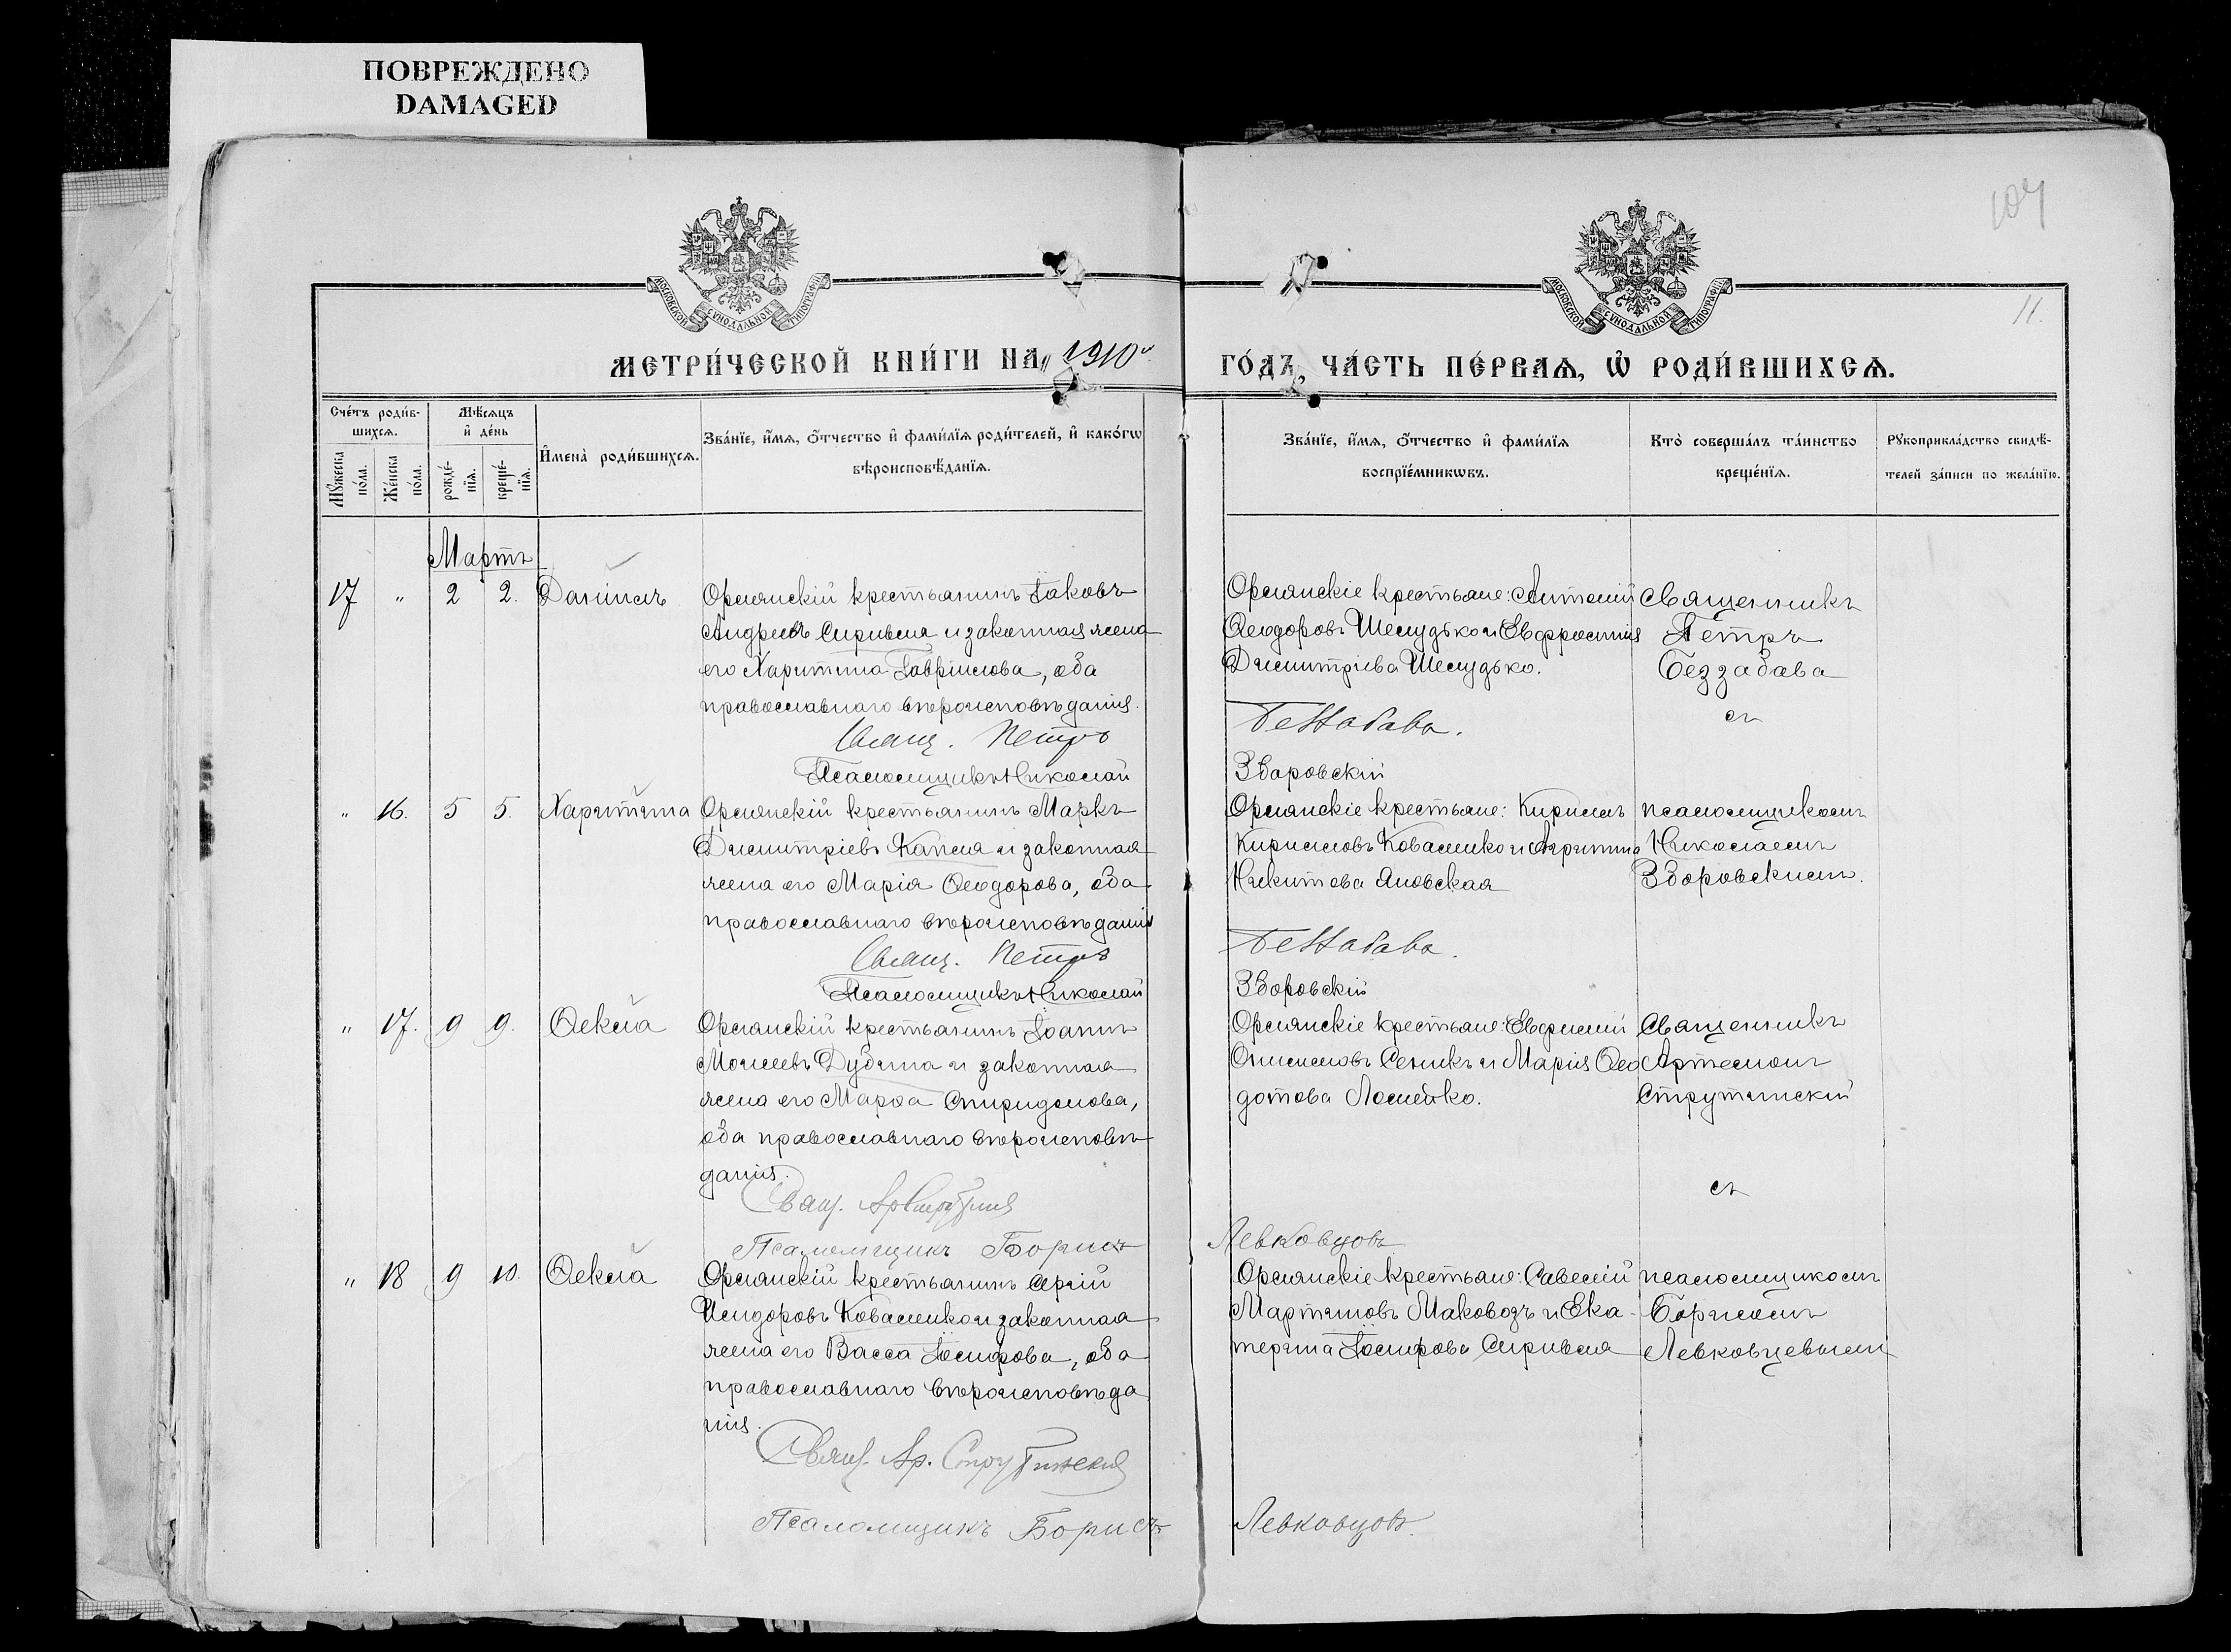 ПОВРЕЖДЕНО
DAMAGED
107
11.
МОСКОВСКОЙ СУНОДАЛЬНОЙ ТИПОГРАФІИ
МОСКОВСКОЙ СУНОДАЛЬНОЙ ТИПОГРАФІИ
МЕТРИ́ЧЕСКОЙ КНИ́ГИ НА „1910“
ГО́ДЪ, ЧА́СТЬ ПЕ́РВАѦ, Ѽ РОДИ́ВШИХСѦ.
Сче́тъ роди́в-
шихсѧ.
Мѣ́сѧцъ
и҆ де́нь
Мꙋ́жеска по́ла.
Же́нска по́ла.
рожде́-
нїѧ.
креще́-
нїѧ.
И҆мена̀ роди́вшихсѧ.
Зва́нїе, и҆́мѧ, ѻ҆́тчество и҆ фами́лїѧ роди́телей, и҆ како́гѡ
вѣроисповѣ́данїѧ.
Зва́нїе, и҆́мѧ, ѻ҆́тчество и҆ фами́лїѧ
воспрїе́мникѡвъ.
Кто̀ соверша́лъ та́инство
креще́нїѧ.
Рꙋкоприкла́дство свидѣ́-
телей за́писи по жела́нїю.
Мартъ
17 „ 2 2. Даніилъ
Орлянскій крестьянинъ Іаковъ
Андреевъ Сиривля и законная жена
его Харитина Гавріилова, оба
православнаго вѣроисповѣданія.
Свящ. Петръ
Псаломщикъ Николай
Орлянскіе крестьяне: Антоній
Ѳеодоровъ Шелудько и Евфросинія
Димитріева Шелудько.
Беззабава.
Зборовскій
Священникъ
Петръ
Беззабава
съ
„ 16. 5 5. Харитина
Орлянскій крестьянинъ Маркъ
Димитріевъ Капля и законная
жена его Марія Ѳеодорова, оба
православнаго вѣроисповѣданія
Свящ. Петръ
Псаломщикъ Николай
Орлянскіе крестьяне: Кириллъ
Кирилловъ Коваленко и Харитина
Никитова Яновская
Беззабава.
Зборовскій
псаломщикомъ
Николаемъ
Зборовскимъ.
„ 17. 9 9. Ѳекла
Орлянскій крестьянинъ Іоаннъ
Моисеевъ Дубина и законная
жена его Марѳа Спиридонова,
оба православнаго вѣроисповѣ
данія.
Свящ. Ар Струтинскій
Псаломщикъ Борисъ
Орлянскіе крестьяне: Евфимій
Онисимовъ Сеникъ и Марія Ѳео
дотова Лосейко.
Левковцовъ
Священникъ
Артемонъ
Струтинскій
съ
„ 18 9 10. Ѳекла
Орлянскій крестьянинъ Сергій
Исидоровъ Коваленко и законная
жена его Васса Іосифова, оба
православнаго вѣроисповѣда
нія.
Свящ. Ар. Струтинскій
Псаломщикъ Борисъ
Орлянскіе крестьяне: Савелій
Мартиновъ Маковозъ и Ека-
терина Іосифова Сиривля
Левковцовъ.
псаломщикомъ
Борисомъ
Левковцевымъ